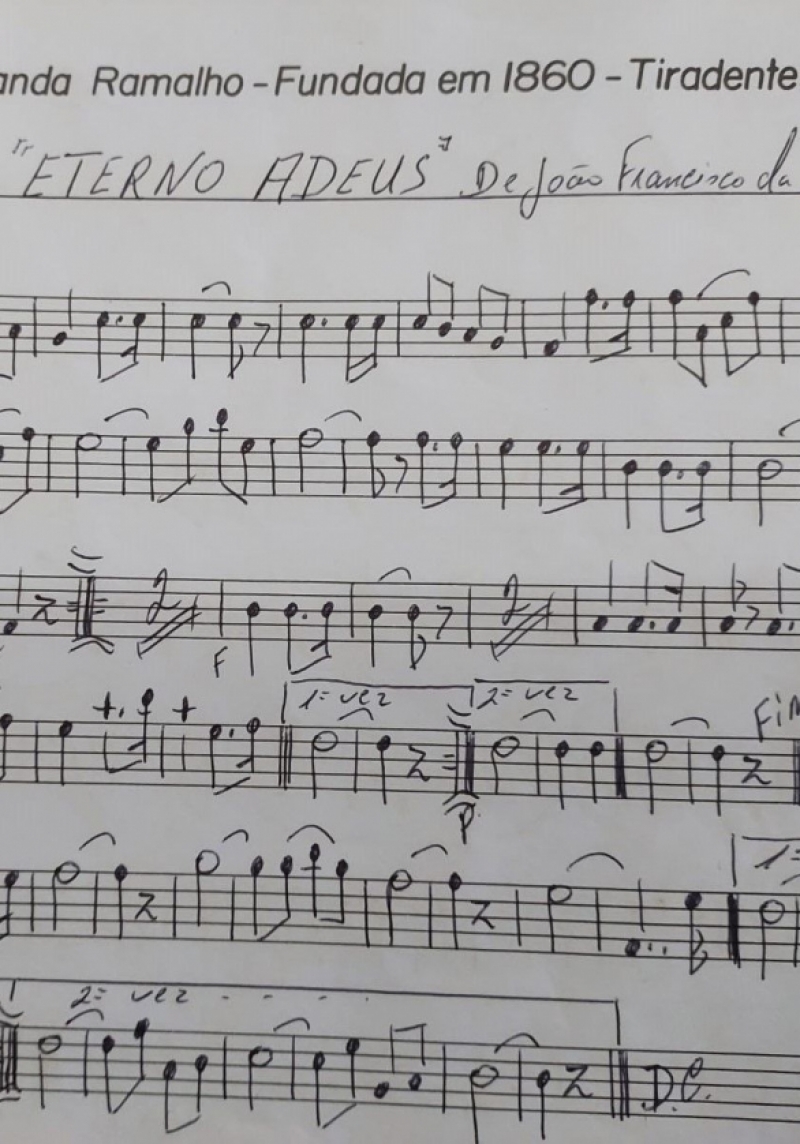 anda Ramalho - Fundada em 1860 - Tiradente
"ETERNO ADEUS" De João Francisco da
F
1ª vez 2ª vez
Fim
P.
1ª
2ª vez
D.C.